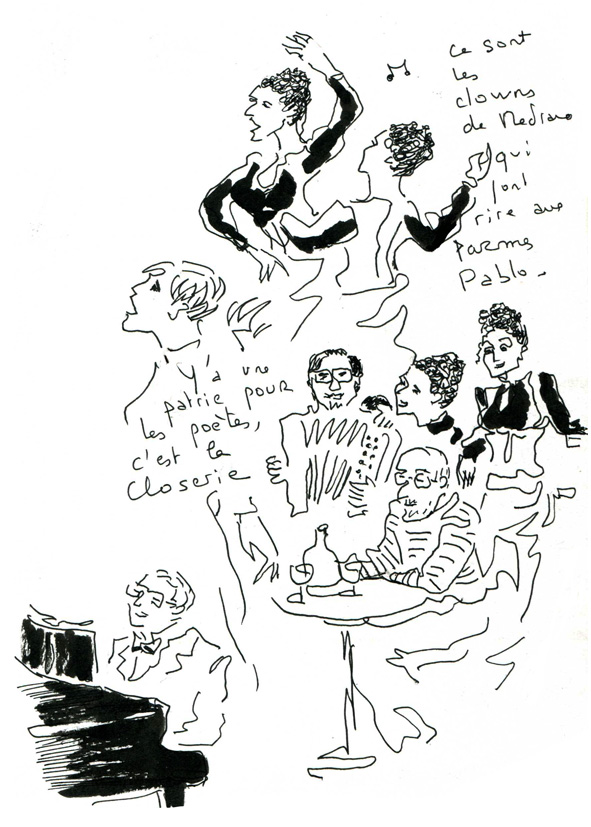 Ce sont
les
clowns
de Medrano
qui
font
rire aux
larmes
Pablo.
Y'a une
patrie pour
les poètes,
c'est la
Closerie